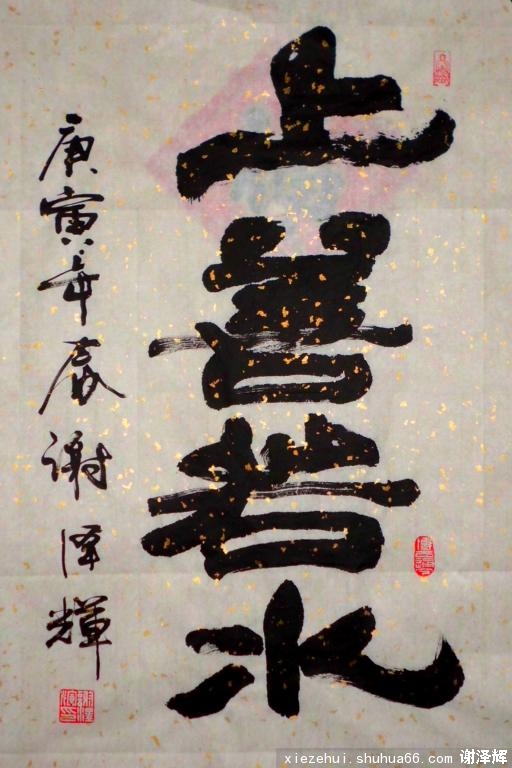 上善若水
庚寅年春谢泽輝
xiezehui.shuhua66.com 谢泽辉